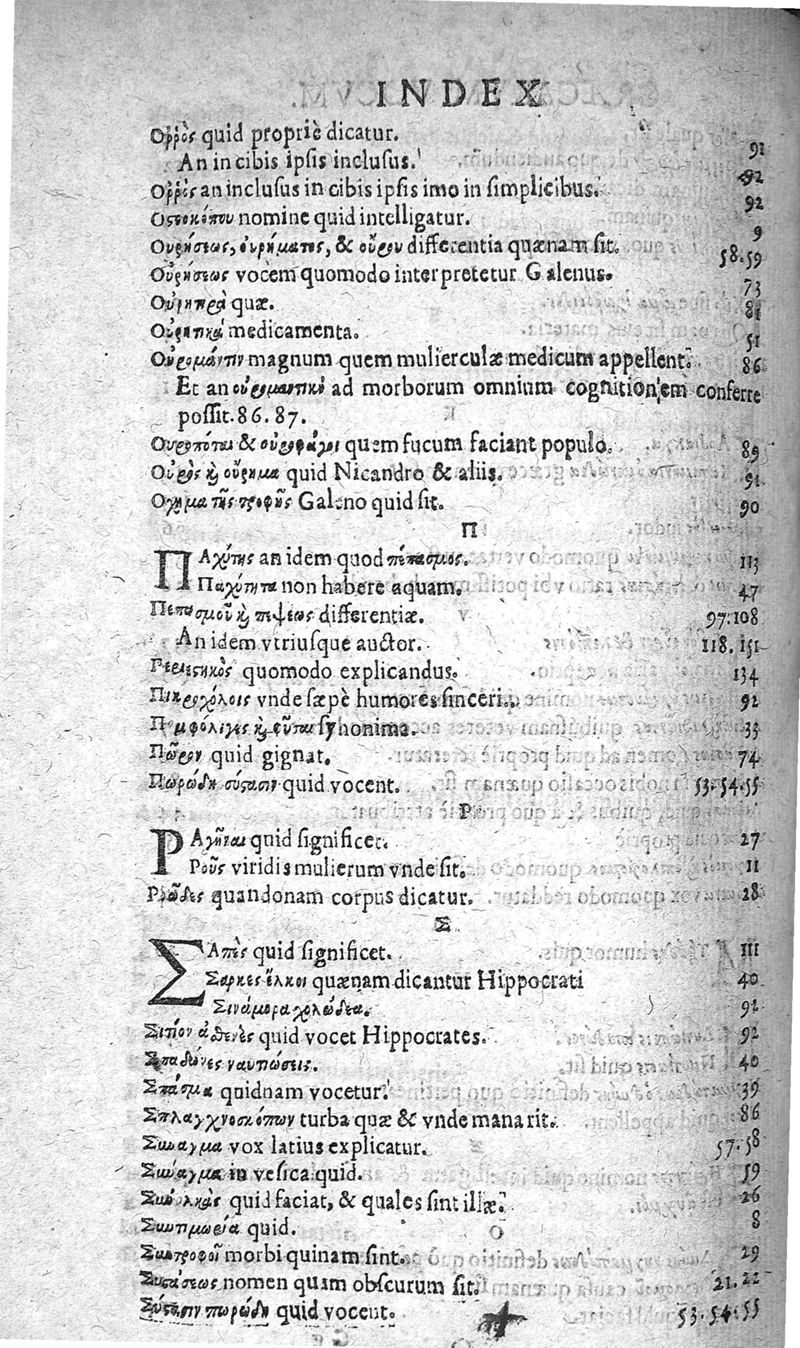 INDEX
Οῤῥὸς quid propriè dicatur. 91
An in cibis ipsis inclusus. 92
Οῤῥὸς an inclusus in cibis ipsis imo in simplicibus. 92
Οστοκόπου nomine quid intelligatur. 9
Ουρήσεως, ουρήματος, & οὔρου differentia quænam sit. 58.59
Οὐρήσεως vocem quomodo interpretetur Galenus. 73
quæ. 81
medicamenta. 51
Οὐρομάντιν magnum quem mulierculæ medicum appellent. 86
Et an ad morborum omnium cognitionem conferre
possit. 86. 87.
Ουροπόται & οὐροφάγοι quem fucum faciant populo. 89
Οὐρὸς ϗ οὔρημα quid Nicandro & aliis. 91
Οχημα τῆς τροφῆς Galeno quid sit. 90
Π
ΠΑχύτης an idem quod πέπασμος. 113
Παχύτητα non habere aquam. 47
Πεπασμοῦ ϗ πέψεως differentiæ. 97.108
An idem vtriusque auctor. 118.151
quomodo explicandus. 134
Πικροχόλοις vnde sæpè humores sinceri. 92
Πομφόλιγες ϗ synonima. 33
Πῶρον quid gignat. 74
Πωρώδη σύστασιν quid vocent. 53.54.55
Ρ
quid significet. 27
Ροῦς viridis mulierum vnde sit. 11
Ροῶδες quandonam corpus dicatur. 28
Σ
ΣΑπὲς quid significet. 111
Σαρκες quænam dicantur Hippocrati 40
χολώδεα. 92
Σιτίον quid vocet Hippocrates. 92
Σπαδῶνες 40
Σπάσμα quidnam vocetur. 39
Σπλαγχνοσκόπων turba quæ & vnde manarit. 86
Σύναγμα vox latius explicatur. 57.58
Σύναγμα in vesica quid. 59
quid faciat, & quales sint illæ. 26
quid. 8
Σύντροφοι morbi quinam sint. 29
Συστάσεως nomen quam obscurum sit. 21.22
Σύστασιν πωρώδη quid vocent. 53.54.55